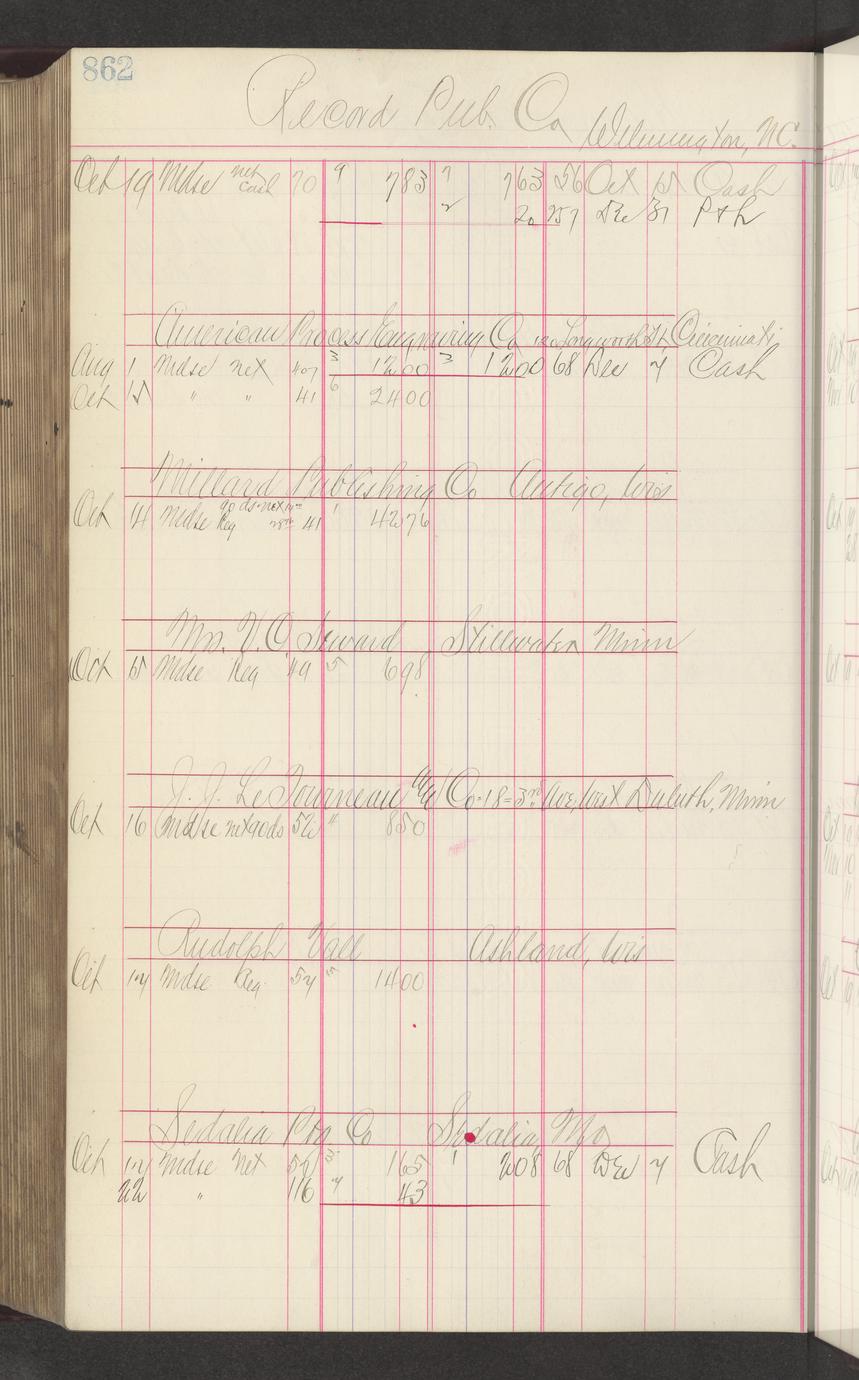 862
Record Pub. Co Wilmington, N.C.
Oct 19 Mdse net cash 70 9 783 7 763 56 Oct 15 Cash
2 20 257 Dec 31 P&L
American Process Engraving Co Longworth St Cincinnati
Aug 1 Mdse net 407 3 1200 3 1200 68 Dec 7 Cash
Oct 15 " " 41 6 2400
Millard Publishing Co Antigo, Wis
Oct 14 Mdse Reg 41 1 4276
Mrs. V. O. Seward Stillwater Minn
Oct 15 Mdse Reg 49 5 698
J. J. LeTourneau Co. 18-3rd Ave, West Duluth, Minn
Oct 16 Mdse net 90 ds 52 " 850
Rudolph Vall Ashland, Wis
Oct 17 Mdse Reg. 57 5 1400
Sedalia Ptg Co Sedalia, Mo
Oct 17 Mdse Net 165 1 208 68 Dec 7 Cash
22 " 116 7 43